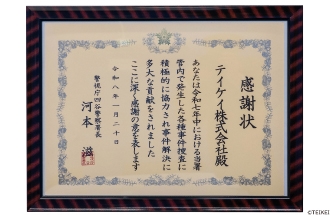 感謝状
テイケイ株式会社殿
あなたは令和七年中における当署
管内で発生した各種事件捜査に
積極的に協力され事件解決に
多大な貢献をされました
ここに深く感謝の意を表します
令和八年一月二十日
警視庁四谷警察署長
河本 滋
©TEIKEI